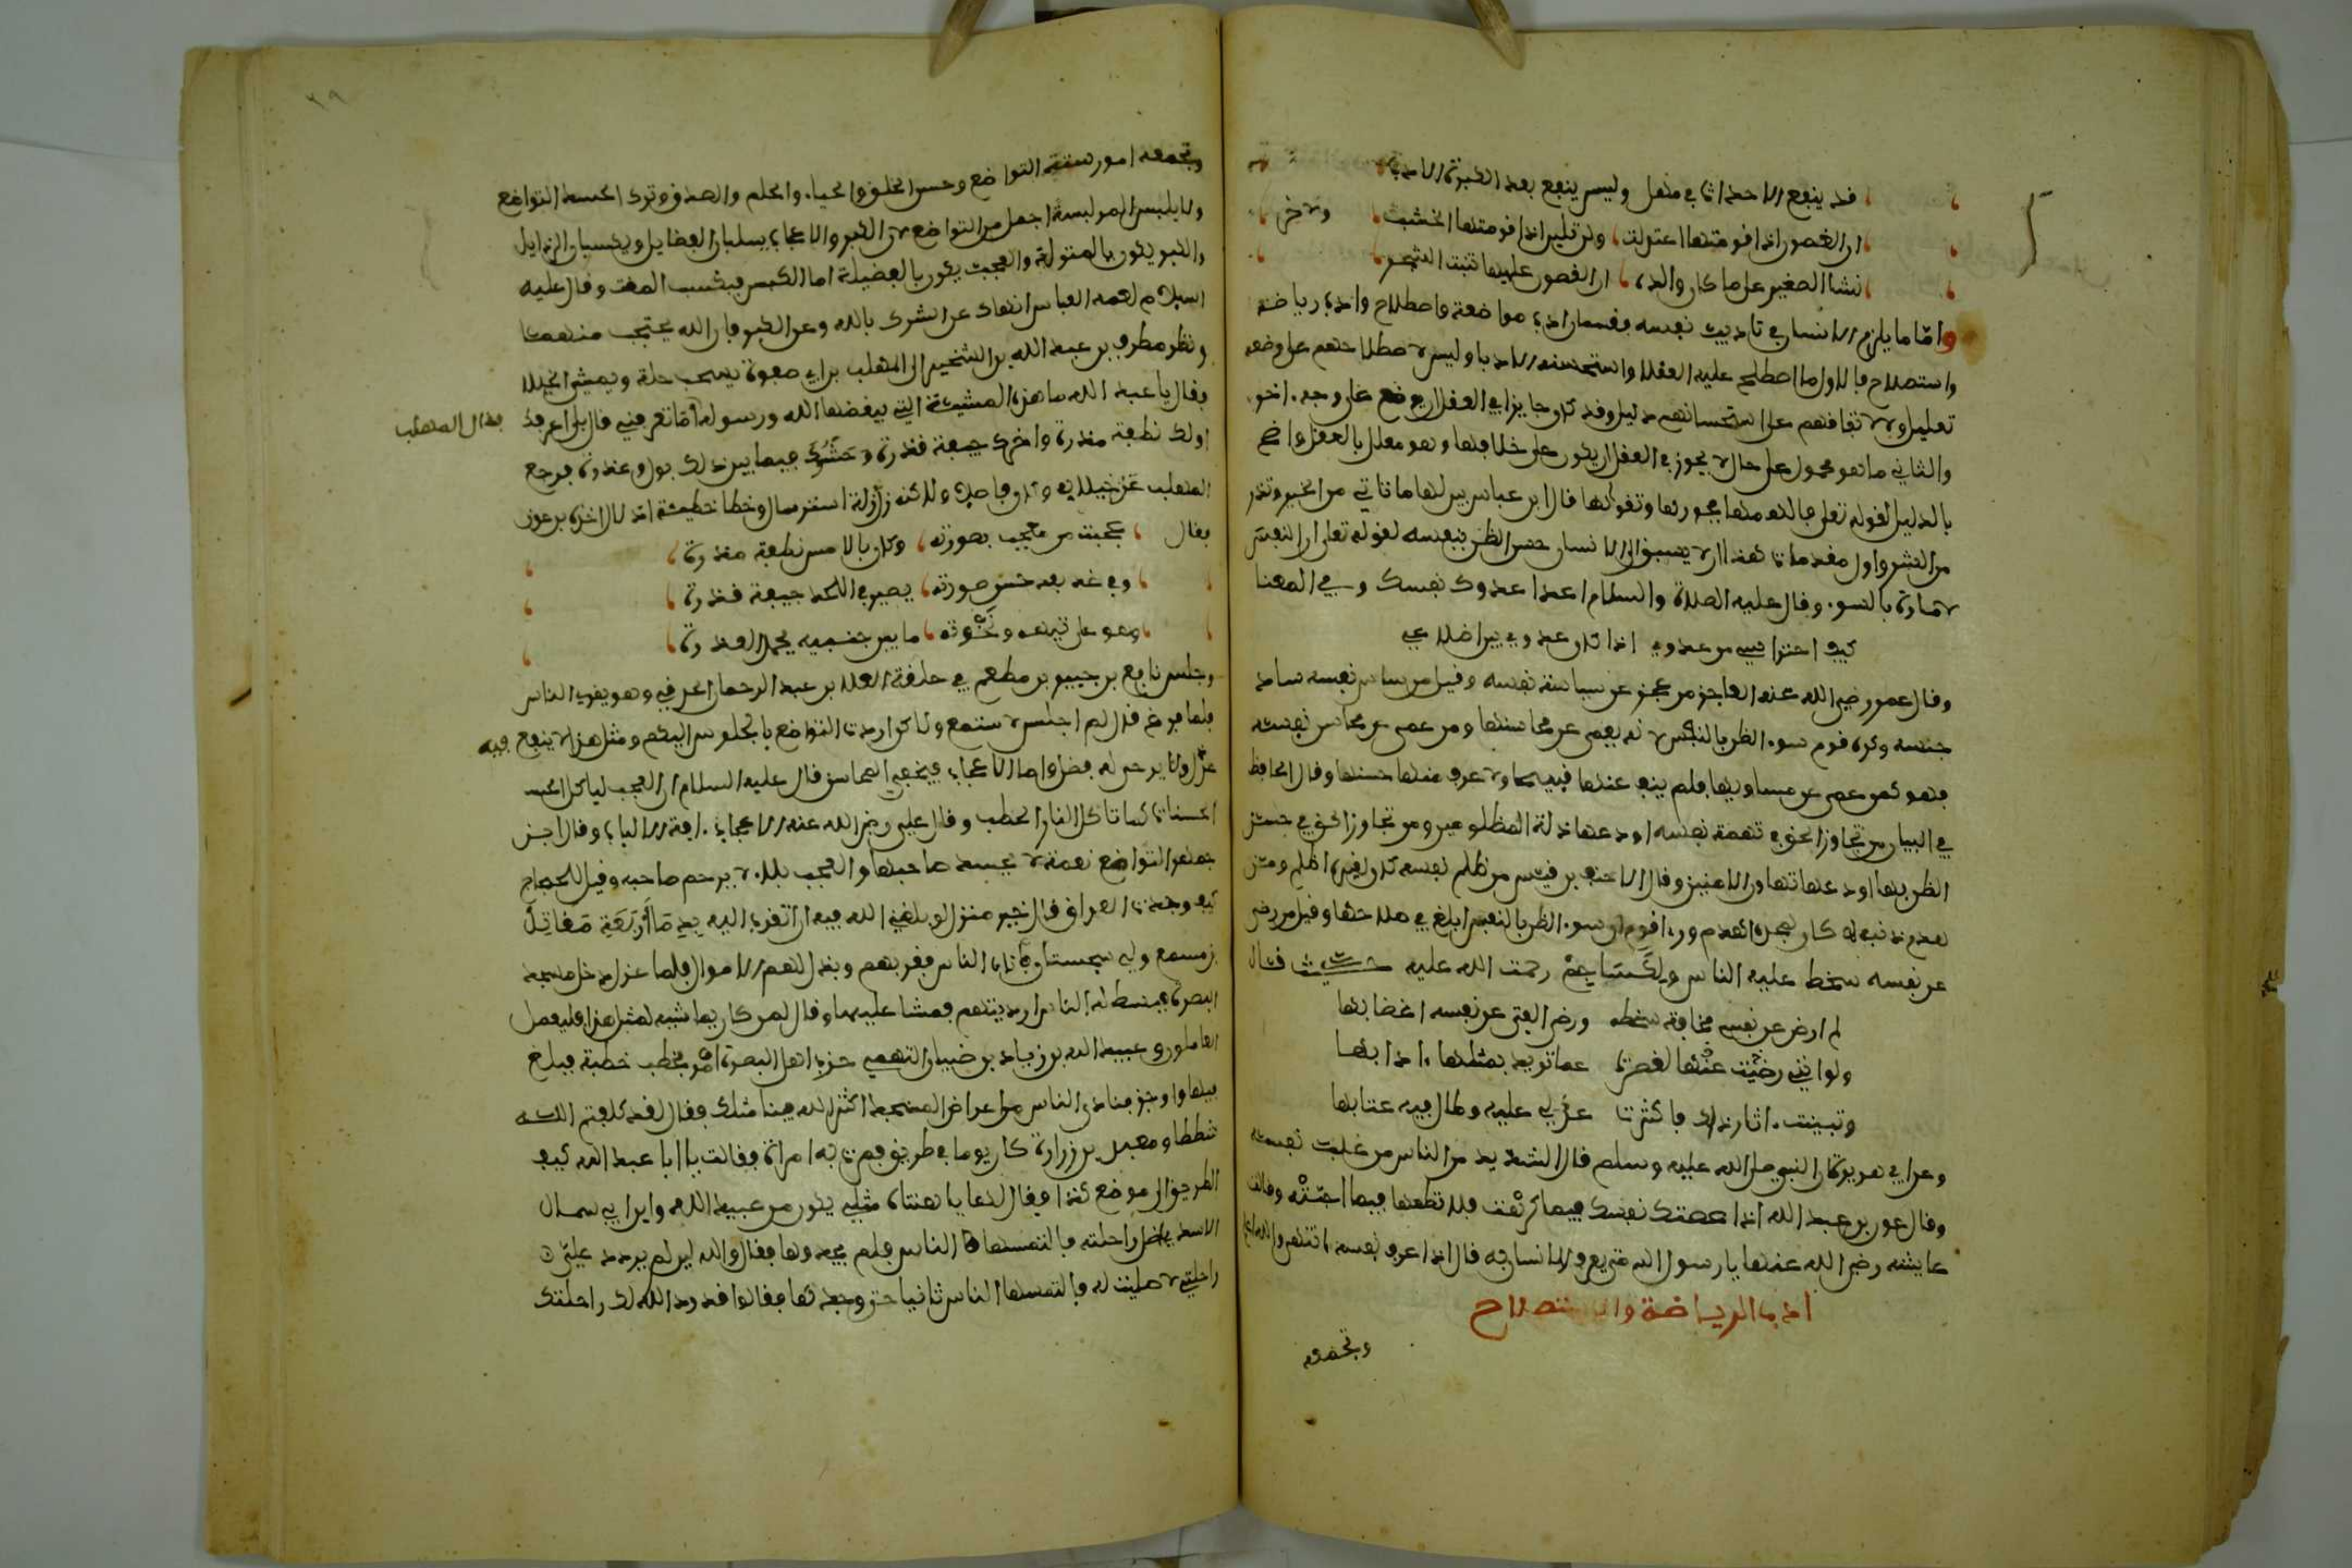 قد ينفع الاحداث في مهل وليس ينفع بعد الكبرة الادب
ان الغصون اذا قومتها اعتدلت ولن تلين اذا قومتها الخشب ولاخر
نشا الصغير على ما كان والده ان الغصون عليها تنبت الشجر
واما ما يلزم الانسان في تاديب نفسه فقسمان ادب مواضعة واصطلاح وادب رياضة
واستصلاح فالاول ما اصطلح عليه العقلا واستحسنه الادبا وليس لاصطلاحهم على وضعه
تعليل ولا لاتفاقهم على استحسانهم دليل وقد كان جايزا في العقل ان يوضع على وجه اخر
والثاني ما هو محمول على حال لا يجوز في العقل ان يكون على خلافها وهو معلل بالعقل واضح
بالدليل لقوله تعلى فالهمها فجورها وتقولها قال ابن عباس بين لها ما تاتي من الخير وتذر
من الشر واول مقدمات هذا ان لا يسبق الى الانسان حسن الظن بنفسه لقوله تعلى ان النفس
لامارة بالسو. وقال عليه الصلاة والسلام اعدا عدوك نفسك وفي المعنا
كيف احتراسي من عدوي اذا كان عدوي بين اضلاعي
وقال عمر رضي الله عنه العاجز من عجز عن سياسة نفسه وقيل من ساس نفسه ساد
جنسه وكره قوم سو. الظن بالنفس لانه يعمي عن محاسنها ومن عمي عن محاسن نفسه
فهو كمن عمي عن مساويها فلم ينف عنها قبيحا ولا عرف منها حسنها وقال الحافظ
في البيان من تجاوز الحق في تهمة نفسه اودعها ذلة المظلومين ومن تجاوز الحق في حسن
الظن بها اودعها تهاون الامنين وقال الاحنف بن قيس من ظلم نفسه كان لغيره اظلم ومن
هدم دينه كان لمجده اهدم ورءا قوم ان سو. الظن بالنفس ابلغ في صلاحها وقيل من رضي
عن نفسه سخط عليه الناس ولكشاجم رحمت الله عليه حيث قال
لم ارض عن نفسي مخافة سخطه ورضى الفتى عن نفسه اغضابها
ولو انني رضيت عنها لقصرت عما تريد بمثلها ادابها
وتبينت. اثار ذلك فاكثرت عذلي عليه وطال فيه عتابها
وعن ابي هريرة ان النبي صلى الله عليه وسلم قال الشديد من الناس من غلب نفسه
وقال عون بن عبد الله اذا عصتك نفسك فيما كرهت فلا تطعها فيما احبته وقالت
عايشة رضي الله عنها يا رسول الله متى يعرف الانسان ربه قال اذا عرف نفسه
ادب الرياضة والاستصلاح
وتجمعه
وتجمعه امور ستة التواضع وحسن الخلق والحيا. والحلم والصدق وترك الحسد التواضع
ولا يلبس المر لبسة اجمل من التواضع لان الكبر والاعجاب يسلبان الفضايل ويكسبان الرذايل
والكبر يكون بالمنزلة والعجب يكون بالفضيلة اما الكبر فيكسب المقت وقال عليه
السلام لعمه العباس انهاك عن الشرك بالله وعن الكبر فان الله يحتجب منهما
ونظر مطرف بن عبد الله بن الشخير الى المهلب بن ابي صفرة يسحب حلة ويمشي الخيلا
فقال يا عبد الله ما هذه المشية التي يبغضها الله ورسوله اما تعرفني قال بلى اعرفك
فقال المهلب
اولك نطفة مذرة واخرك جيفة قذرة وحشوك فيما بين ذلك بول وعذرة فرجع
المهلب عن خيلايه وكان فاضلا ولكنه زل زلة استرسال وخطا خطيئة
فقال عجبت من معجب بصورته وكان بالامس نطفة مذرة
وفي غد بعد حسن صورته يصير في اللحد جيفة قذرة
وهو على تيهه ونخوته ما بين جنبيه يحمل العذرة
وجلس نافع بن جبير بن مطعم في حلقة العلا بن عبد الرحمان الحرقي وهو يقري الناس
فلما فرغ قال لم اجلس لاستمع ولاكن اردت التواضع بالجلوس اليكم ومثل هذا لا ينفع فيه
عذل ولا يرجى له فضل واما الاعجاب فيخفي المحاسن قال عليه السلام ان العجب لياكل
الحسنات كما تاكل النار الحطب وقال علي رضي الله عنه الاعجاب افة الالباب وقال
جمهر التواضع نعمة لا يحسد صاحبها والعجب بلا. لا يرحم صاحبه وقيل للحجاج
كيف وجدت العراق قال خير منزل لو بلغني الله فيه ان اتقرب اليه بدما أربعة مقاتل
بن مسمع ولي سجستان فاتاه الناس فقربهم وبذل لهم الاموال فلما عزل دخل مسجد
البصرة فبسط له الناس ارديتهم فمشا عليها وقال لمن كان يماشيه لمثل هذا فليعمل
العاملون وعبيد الله بن زياد بن ضبيان التيمي حزب اهل البصرة امر فخطب خطبة فبلغ
فيها واوجز فنادى الناس من اعراض المسجد اكثر الله فينا مثلك فقال لقد كلفتم الله
شططا ومعبد بن زرارة كان يوما في طريق فمرت به امراة فقالت يا ابا عبد الله كيف
الطريق الى موضع كذا فقال لها يا هنتاه مثلي يكون من عبيد الله وابو ابي سمال
الاسدي اضل راحلته فالتمسها الناس فلم يجدوها فقال والله لين لم يردد علي
راحلتي لا صليت له فالتمسها الناس ثانيا حتى وجدوها فقالوا قد رد الله لك راحلتك